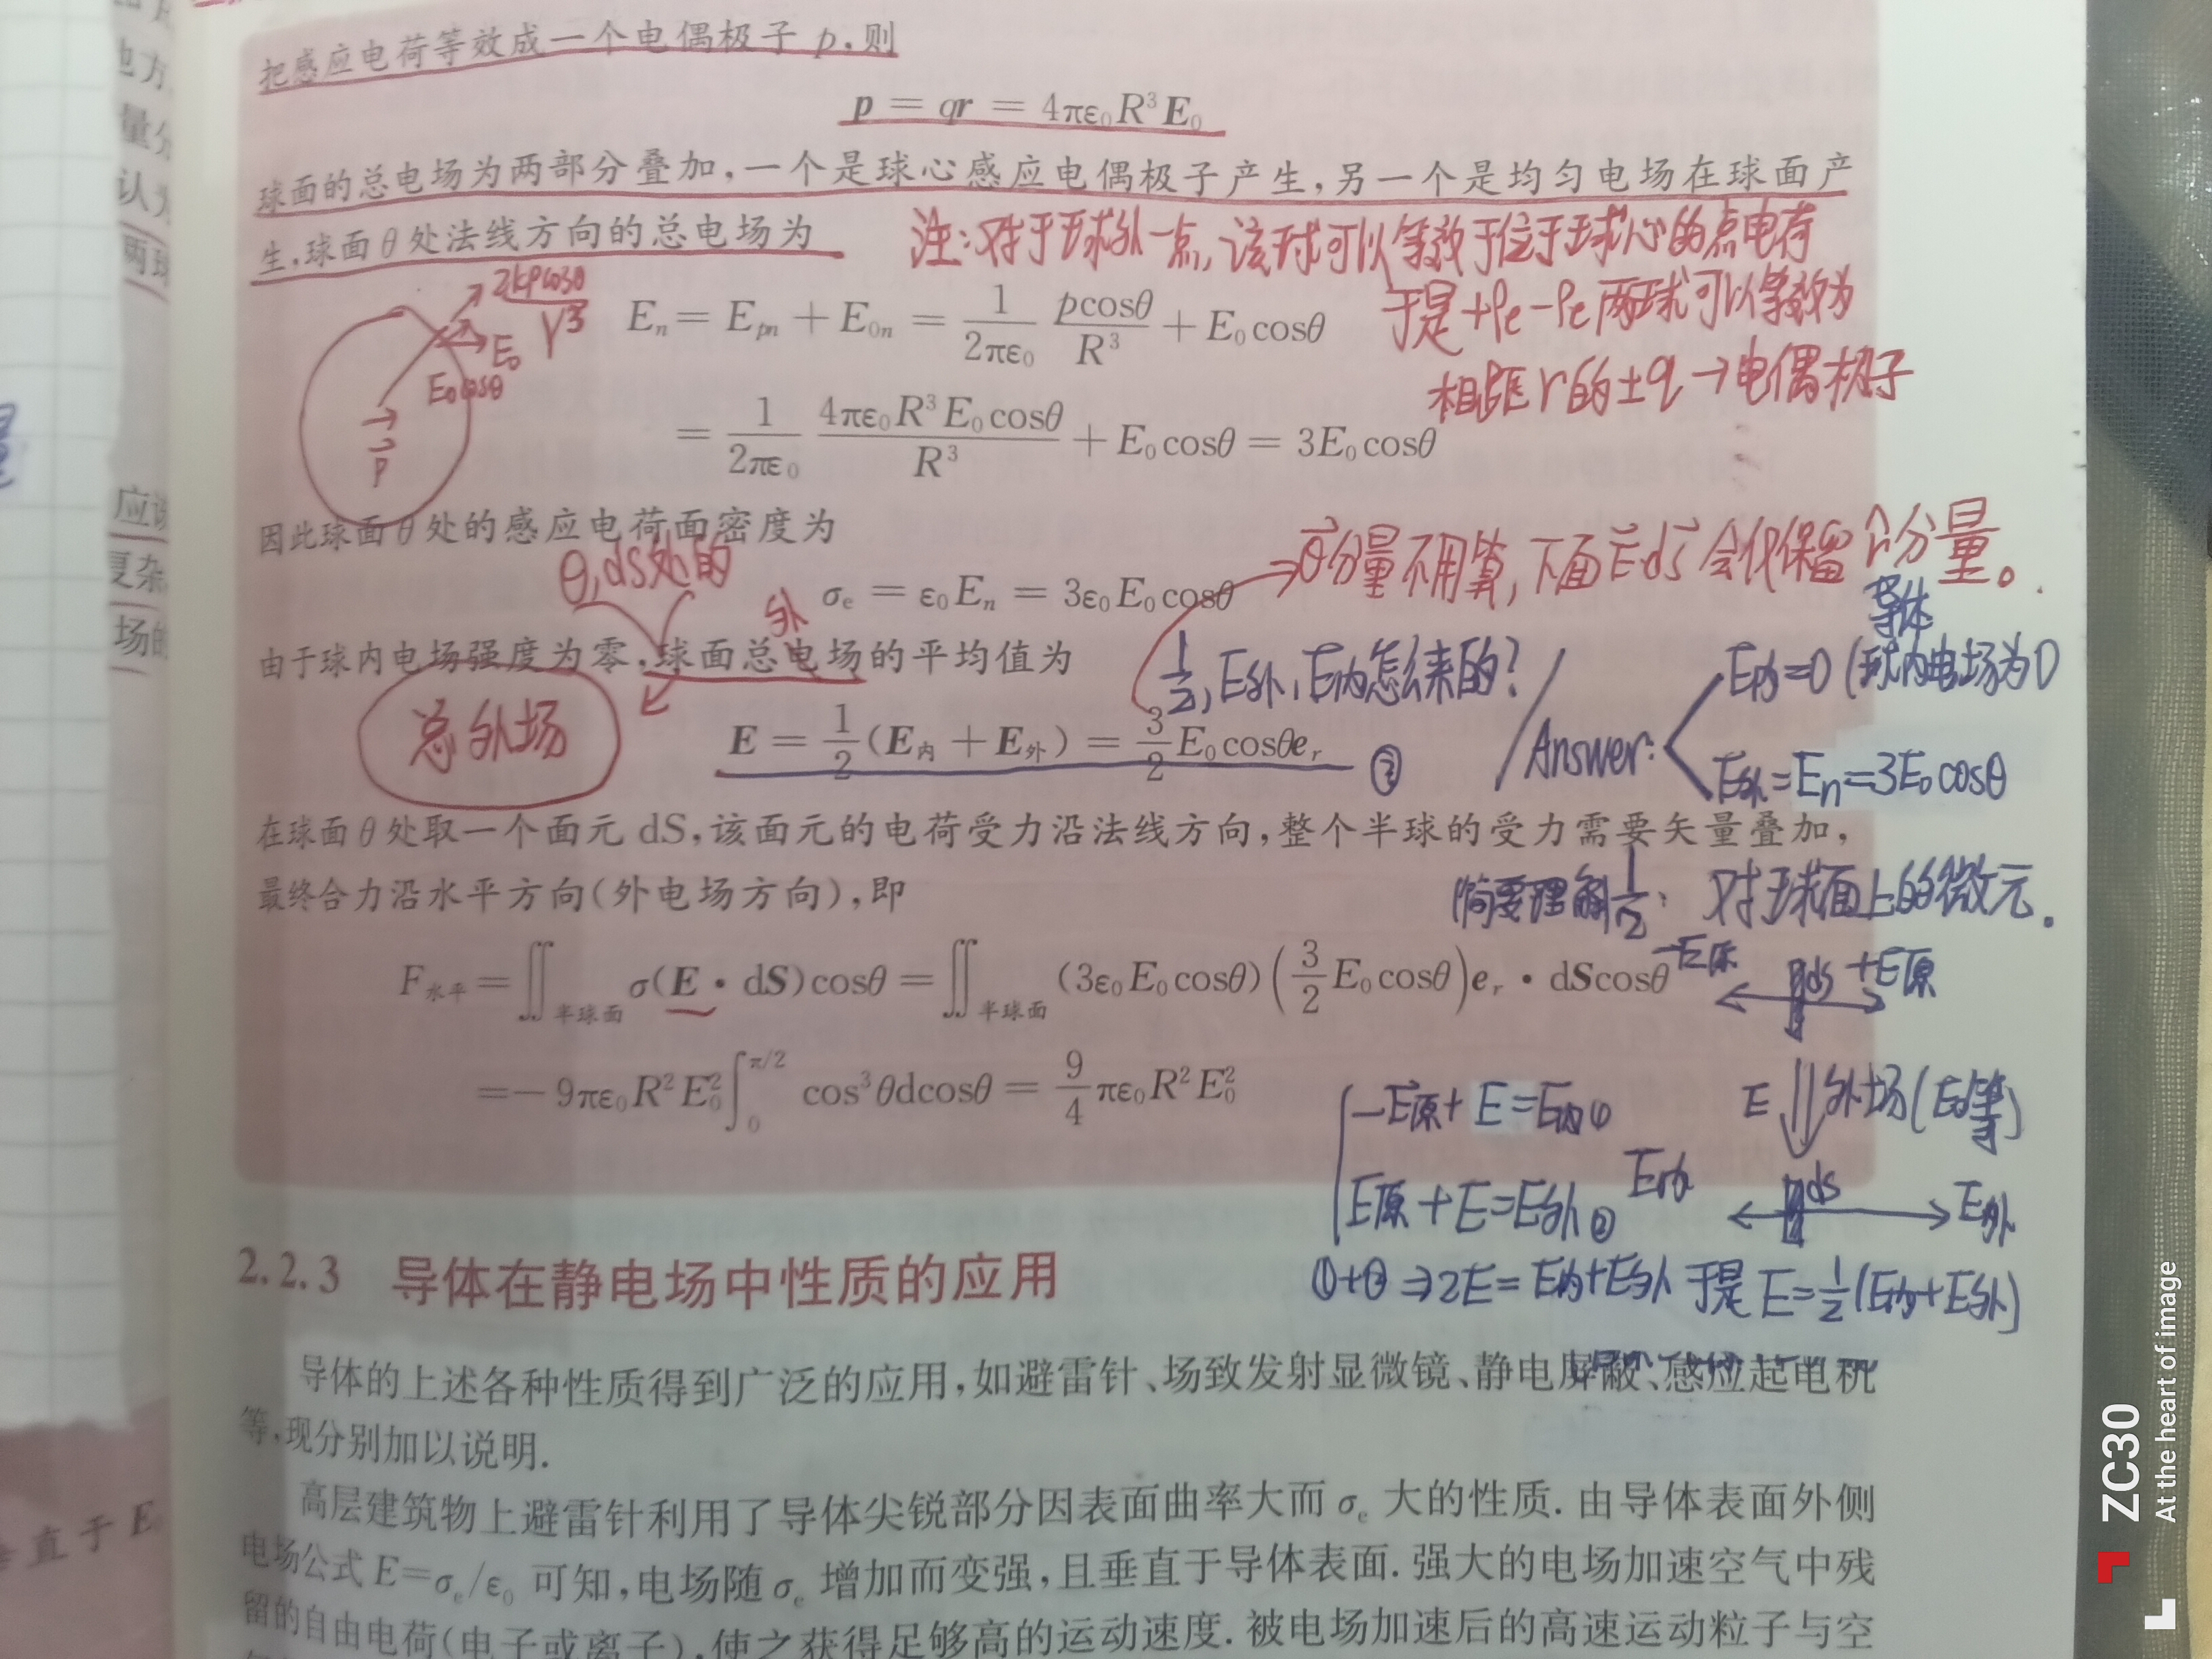 把感应电荷等效成一个电偶极子 p,则
p = qr = 4πε₀R³E₀
球面的总电场为两部分叠加,一个是球心感应电偶极子产生,另一个是均匀电场在球面产
生,球面θ处法线方向的总电场为
注:对于球外一点,该球可以等效于位于球心的点电荷
于是+ρe -ρe 两球可以等效为
相距r的±q→电偶极子
2kpcosθ/r³
E₀
E₀cosθ
p
Eₙ = Eₚₙ + E₀ₙ = 1/(2πε₀) pcosθ/R³ + E₀cosθ
= 1/(2πε₀) 4πε₀R³E₀cosθ/R³ + E₀cosθ = 3E₀cosθ
因此球面θ处的感应电荷面密度为
θ,ds处的
σₑ = ε₀Eₙ = 3ε₀E₀cosθ
→θ分量不用算,下面E·ds会仅保留r̂分量。
外
由于球内电场强度为零,球面总电场的平均值为
总外场
E = 1/2(E内 + E外) = 3/2 E₀cosθeᵣ ③
1/2, E外, E内怎么来的?
Answer:
导体
E内=0 (球内电场为0
E外=Eₙ=3E₀cosθ
在球面θ处取一个面元 dS,该面元的电荷受力沿法线方向,整个半球的受力需要矢量叠加,
最终合力沿水平方向(外电场方向),即
简要理解1/2: 对球面上的微元.
F水平 = ∬半球面 σ(E·dS)cosθ = ∬半球面 (3ε₀E₀cosθ)(3/2 E₀cosθ)eᵣ·dScosθ
-E原 ds +E原
= -9πε₀R²E₀² ∫₀^(π/2) cos³θdcosθ = 9/4 πε₀R²E₀²
E 外场(E₀等)
-E原+E=E内①
E原+E=E外②
E内 ds E外
①+②⇒2E=E内+E外 于是 E=1/2(E内+E外)
2.2.3 导体在静电场中性质的应用
导体的上述各种性质得到广泛的应用,如避雷针、场致发射显微镜、静电屏蔽、感应起电机
等,现分别加以说明.
高层建筑物上避雷针利用了导体尖锐部分因表面曲率大而σₑ大的性质. 由导体表面外侧
电场公式E=σₑ/ε₀可知,电场随σₑ增加而变强,且垂直于导体表面. 强大的电场加速空气中残
留的自由电荷(电子或离子),使之获得足够高的运动速度. 被电场加速后的高速运动粒子与空
地方
量分
认为
两球
应该
复杂
场的
直于E
ZC30
At the heart of image